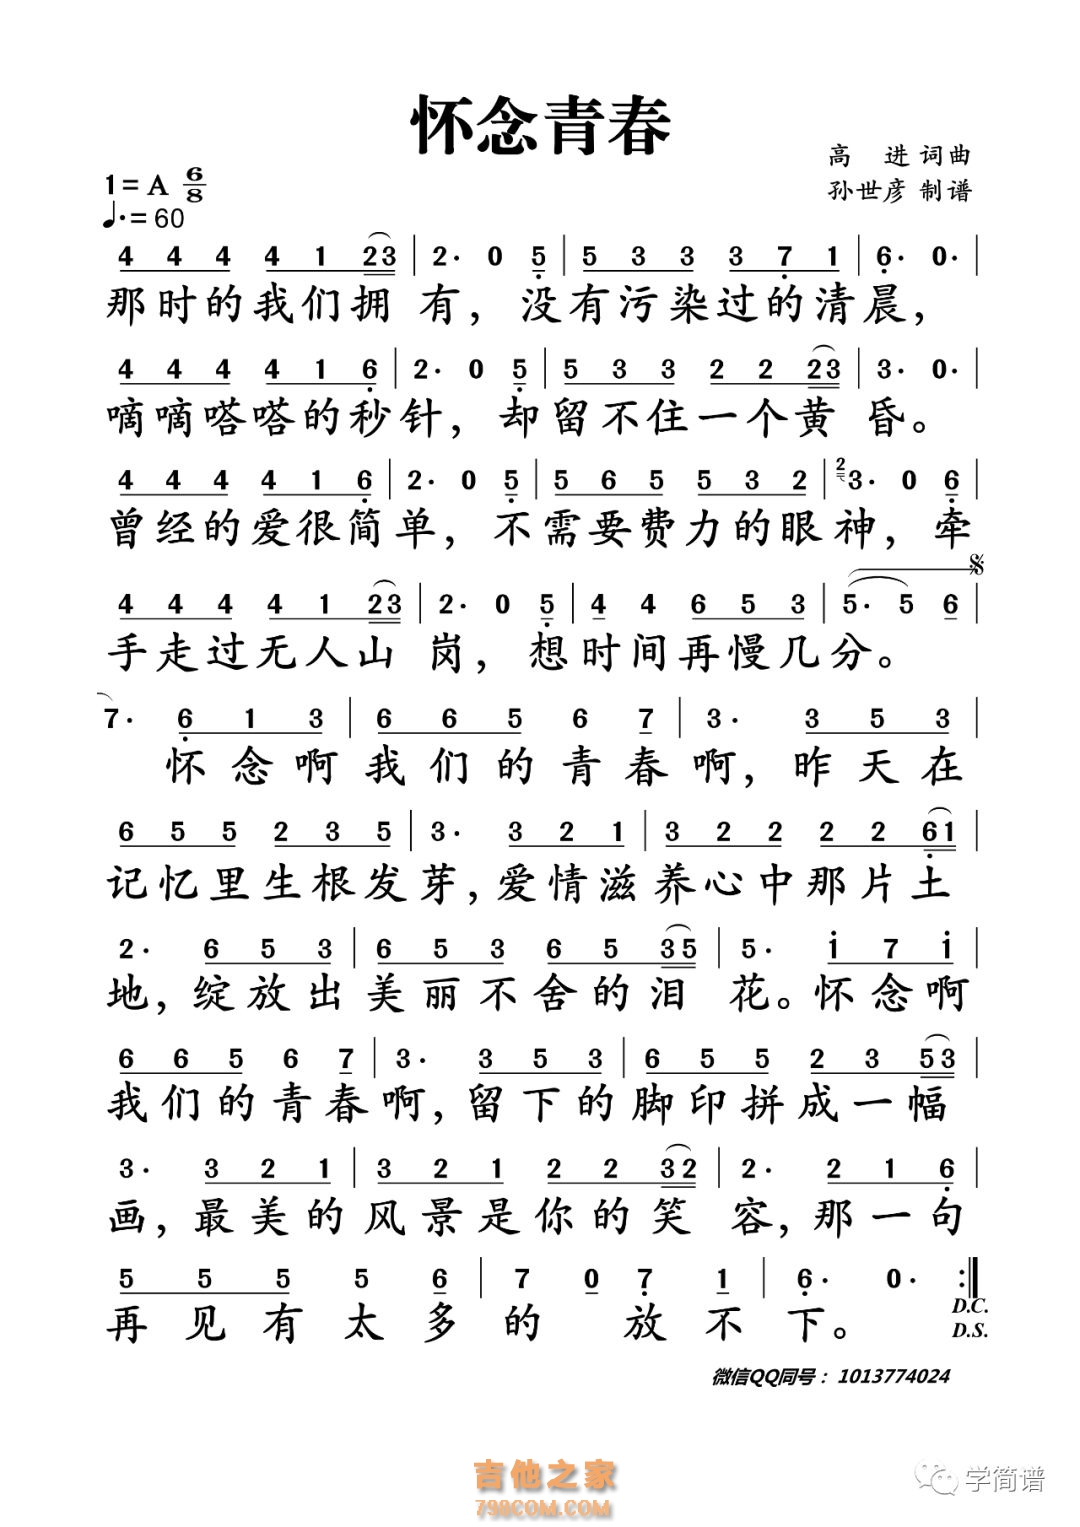 怀念青春
高 进 词曲
1=A 6/8
孙世彦 制谱
♩.=60
4 4 4 4 1 23 | 2· 0 5 | 5 3 3 3 7 1 | 6· 0· |
那时的我们拥 有，没有污染过的清晨，
4 4 4 4 1 6 | 2· 0 5 | 5 3 3 2 2 23 | 3· 0· |
嘀嘀嗒嗒的秒针，却留不住一个黄 昏。
4 4 4 4 1 6 | 2· 0 5 | 5 6 5 5 3 2 | 2 3· 0 6 |
曾经的爱很简单，不需要费力的眼神，牵
4 4 4 4 1 23 | 2· 0 5 | 4 4 6 5 3 | 5· 5 6 |
手走过无人山 岗，想时间再慢几分。
7· 6 1 3 | 6 6 5 6 7 | 3· 3 5 3 |
怀念啊我们的青春啊，昨天在
6 5 5 2 3 5 | 3· 3 2 1 | 3 2 2 2 2 61 |
记忆里生根发芽，爱情滋养心中那片土
2· 6 5 3 | 6 5 3 6 5 35 | 5· i 7 i |
地，绽放出美丽不舍的泪 花。怀念啊
6 6 5 6 7 | 3· 3 5 3 | 6 5 5 2 3 53 |
我们的青春啊，留下的脚印拼成一幅
3· 3 2 1 | 3 2 1 2 2 32 | 2· 2 1 6 |
画，最美的风景是你的笑 容，那一句
5 5 5 5 6 | 7 0 7 1 | 6· 0· :|
再见有太多的 放不下。
D.C.
D.S.
微信QQ同号：1013774024
吉他之家
798COM.COM
学简谱